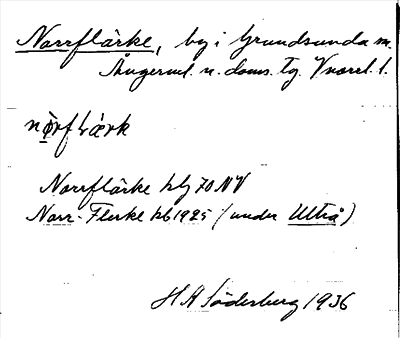 Norrflärke, by i Grundsunda sn.
Ångerml. n. doms. tg. Vnorrl. l.
nòrfLærk
Norrflärke kbl 70 NV
Norr-Flerke kb 1925 (under Ultrå)
H A Söderberg 1936